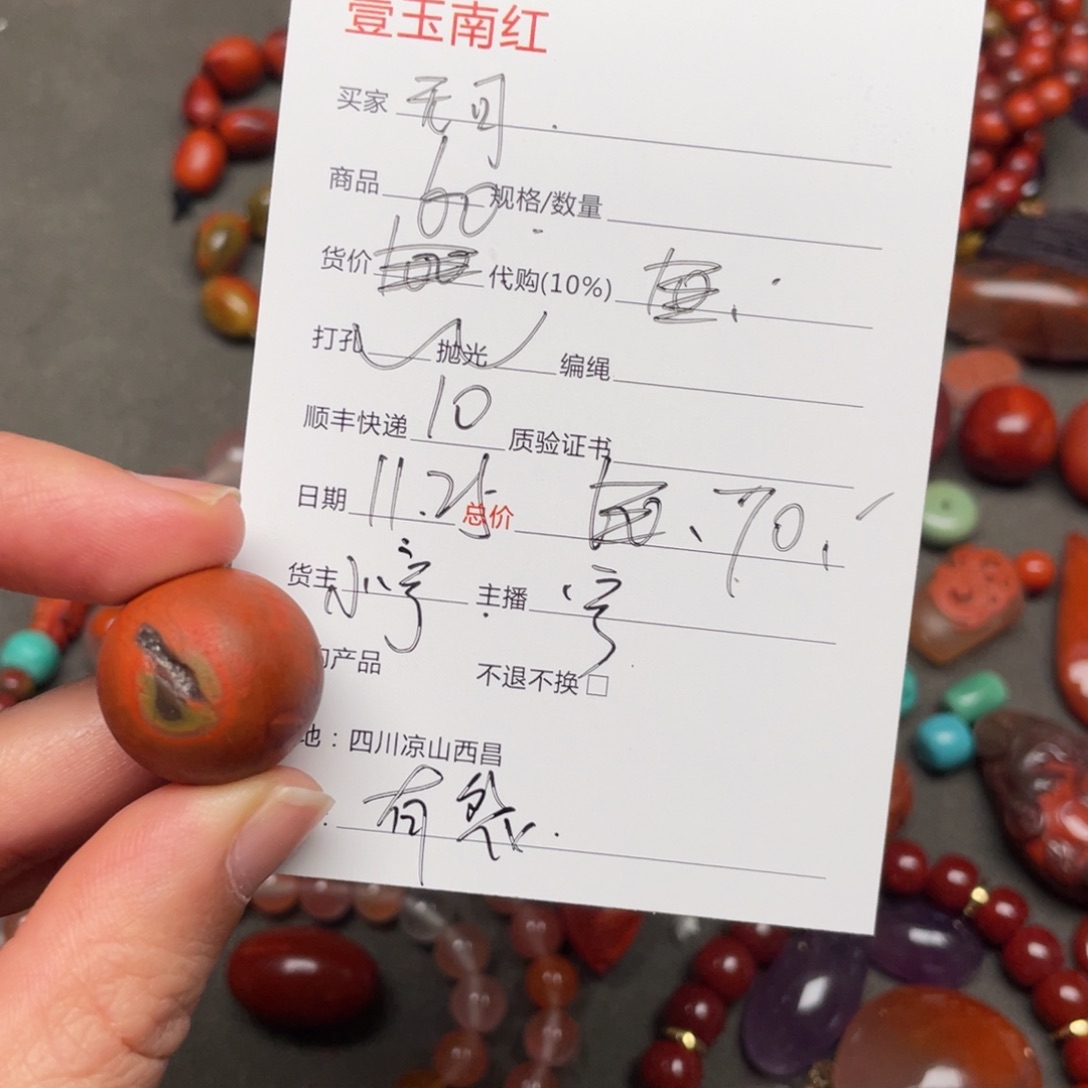 壹玉南红
买家 无可
商品 60 规格/数量
货价 代购(10%)
打孔 抛光 编绳
顺丰快递 10 质验证书
日期 11.25 总价 70
货主 小宇 主播 宇
产品 不退不换□
地：四川凉山西昌
有裂